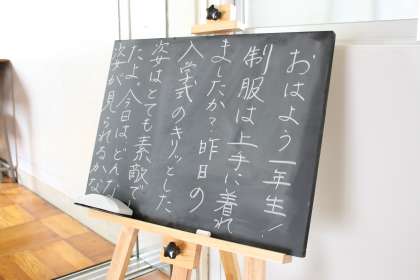 おはよう一年生！
制服は上手に着れ
ましたか？昨日の
入学式のキリッとした
姿はとても素敵でし
たよ。今日はどんな
姿が見られるかな